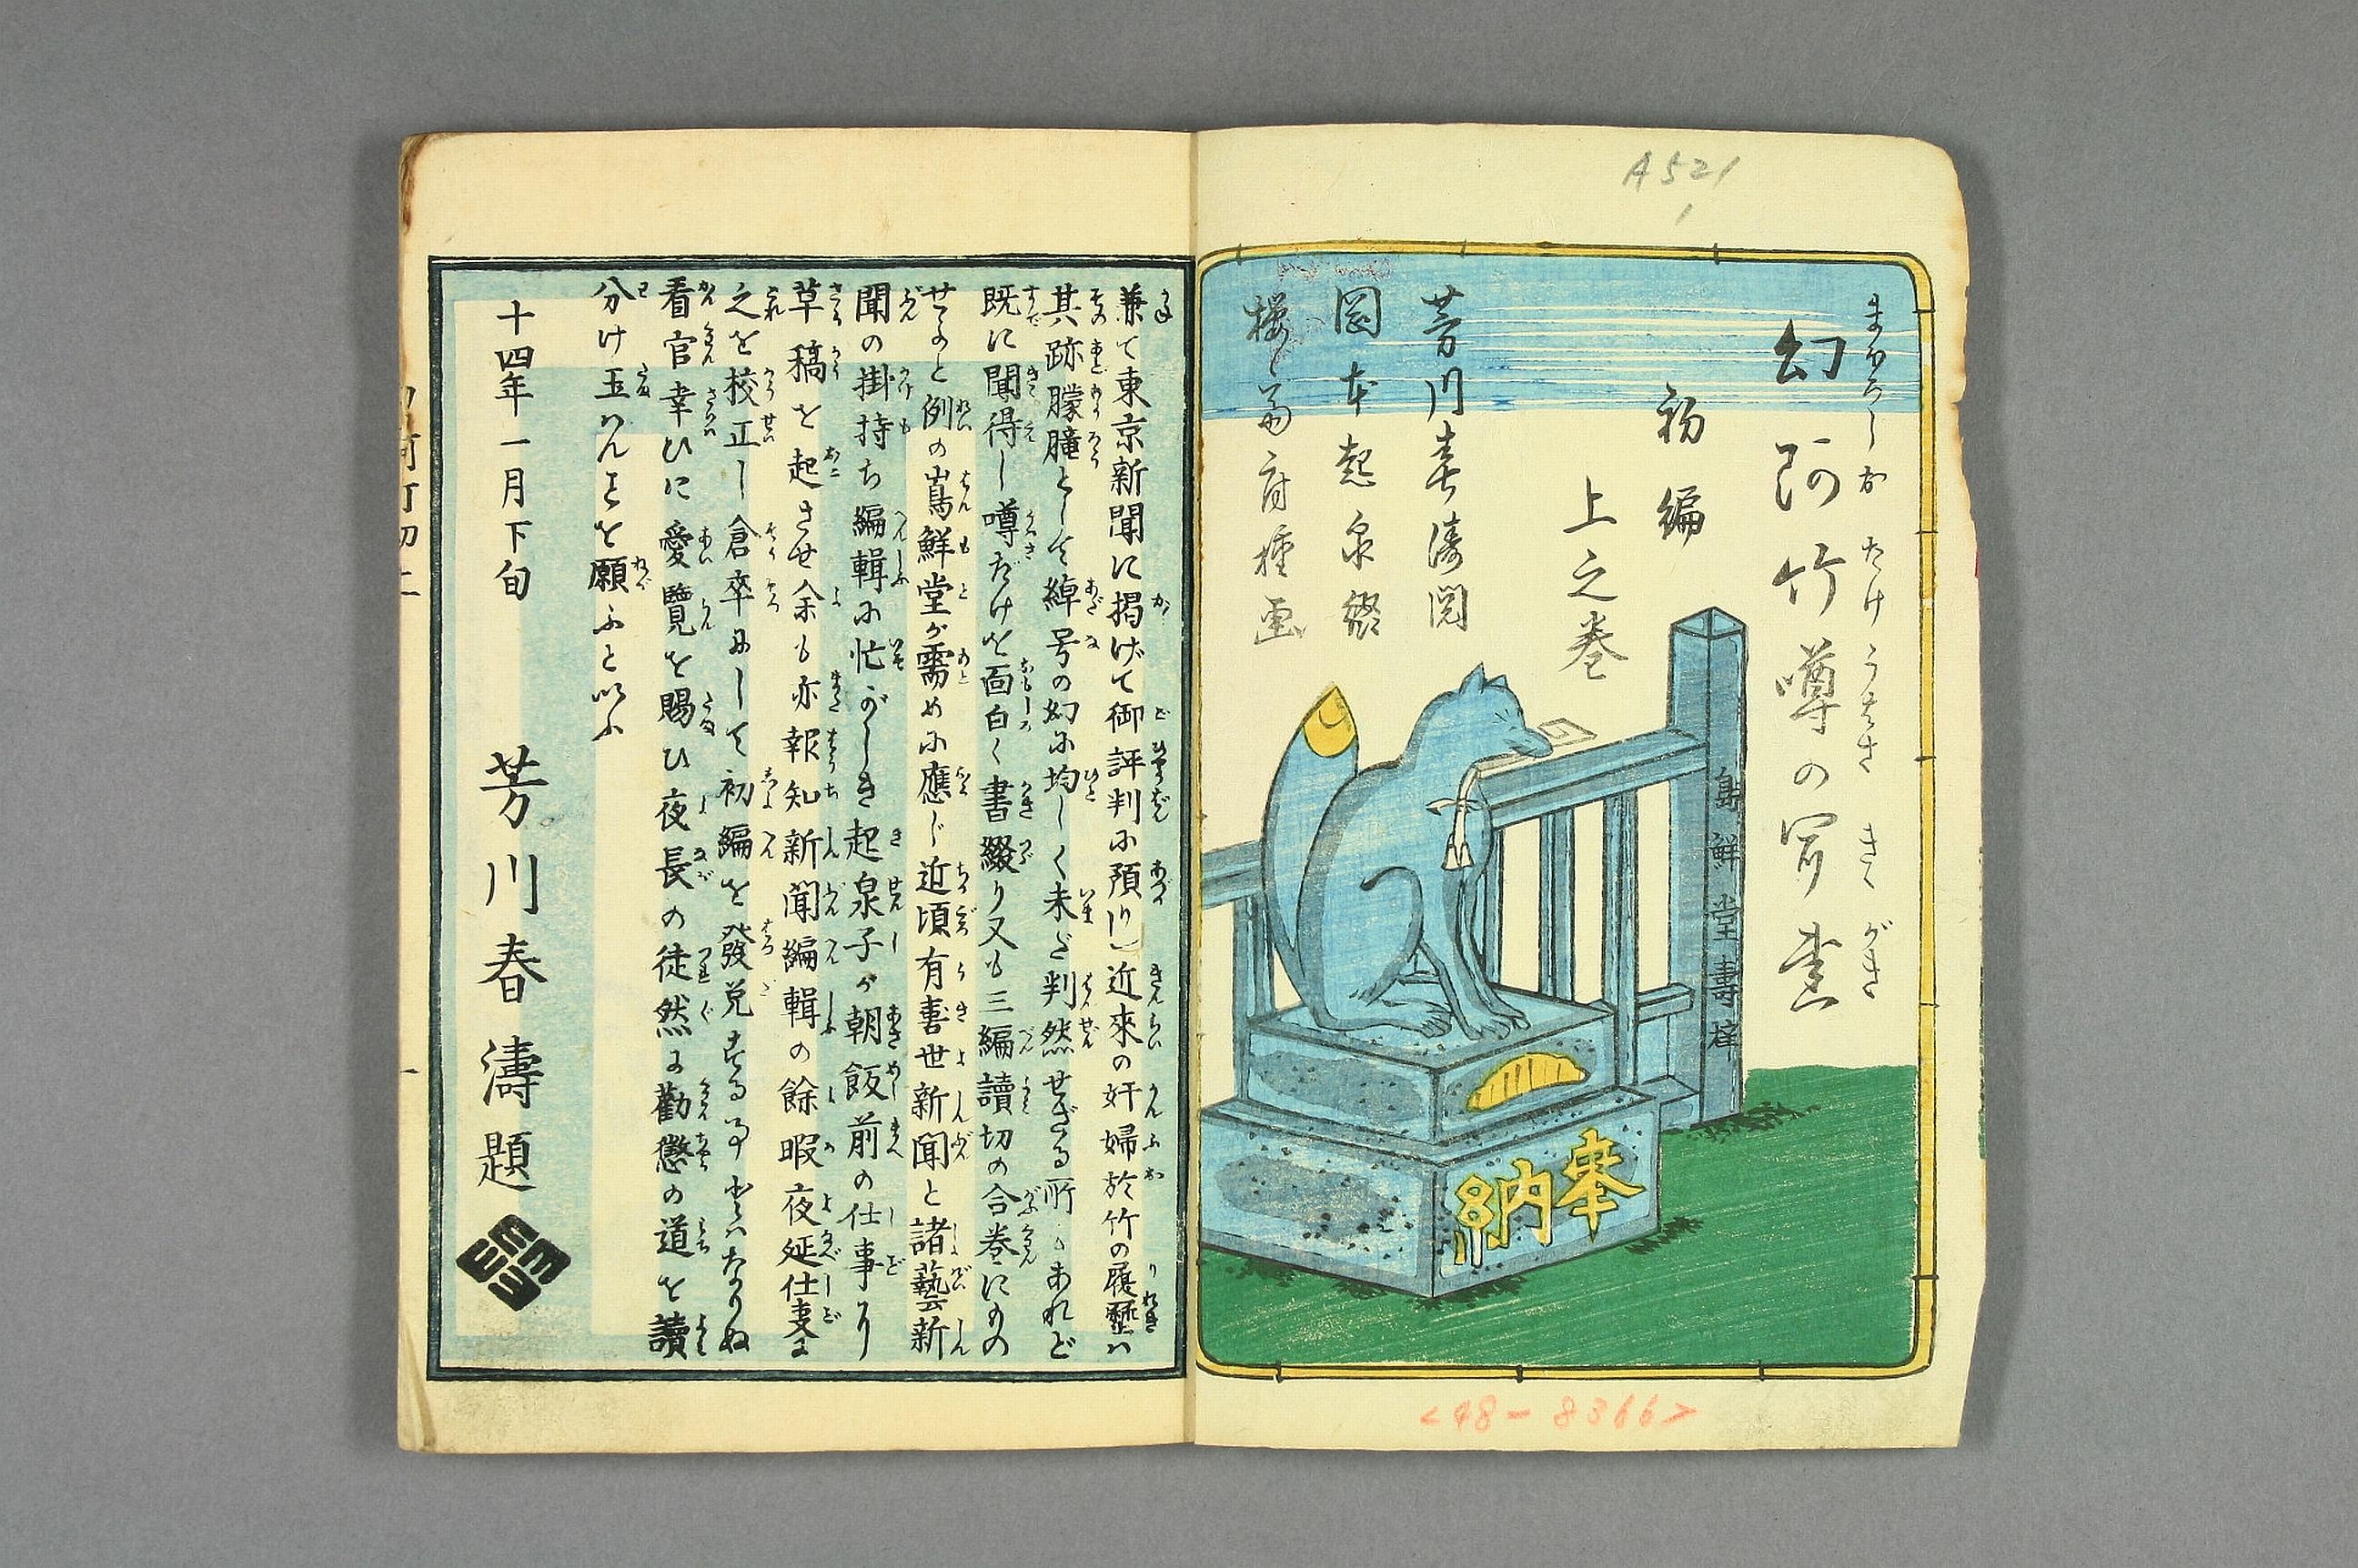 A521
1
まぼろしおたけうはさきくがき
幻阿竹噂の聞書
初編
上之巻
芳川春濤閲
岡本起泉綴
桜斎房種画
島鮮堂壽梓
奉納
<48-8366>
兼て東京新聞に掲げて御評判に預りし近來の奸婦於竹の履歴ハ
其跡朦朧として綽号の幻に均しく未だ判然せざる所もあれど
既に聞得し噂だけを面白く書綴り又も三編讀切の合巻にもの
せよと例の嶌鮮堂が需めに應じ近頃有喜世新聞と諸藝新
聞の掛持ち編輯に忙がしき起泉子が朝飯前の仕事に
草稿を起させ余も亦報知新聞編輯の餘暇夜延仕事に
之を校正し倉卒にして初編を發兌する事とハなりぬ
看官幸ひに愛覽を賜ひ夜長の徒然に勸懲の道を讀
分け玉ハんことを願ふと以ふ
十四年一月下旬
芳川春濤題